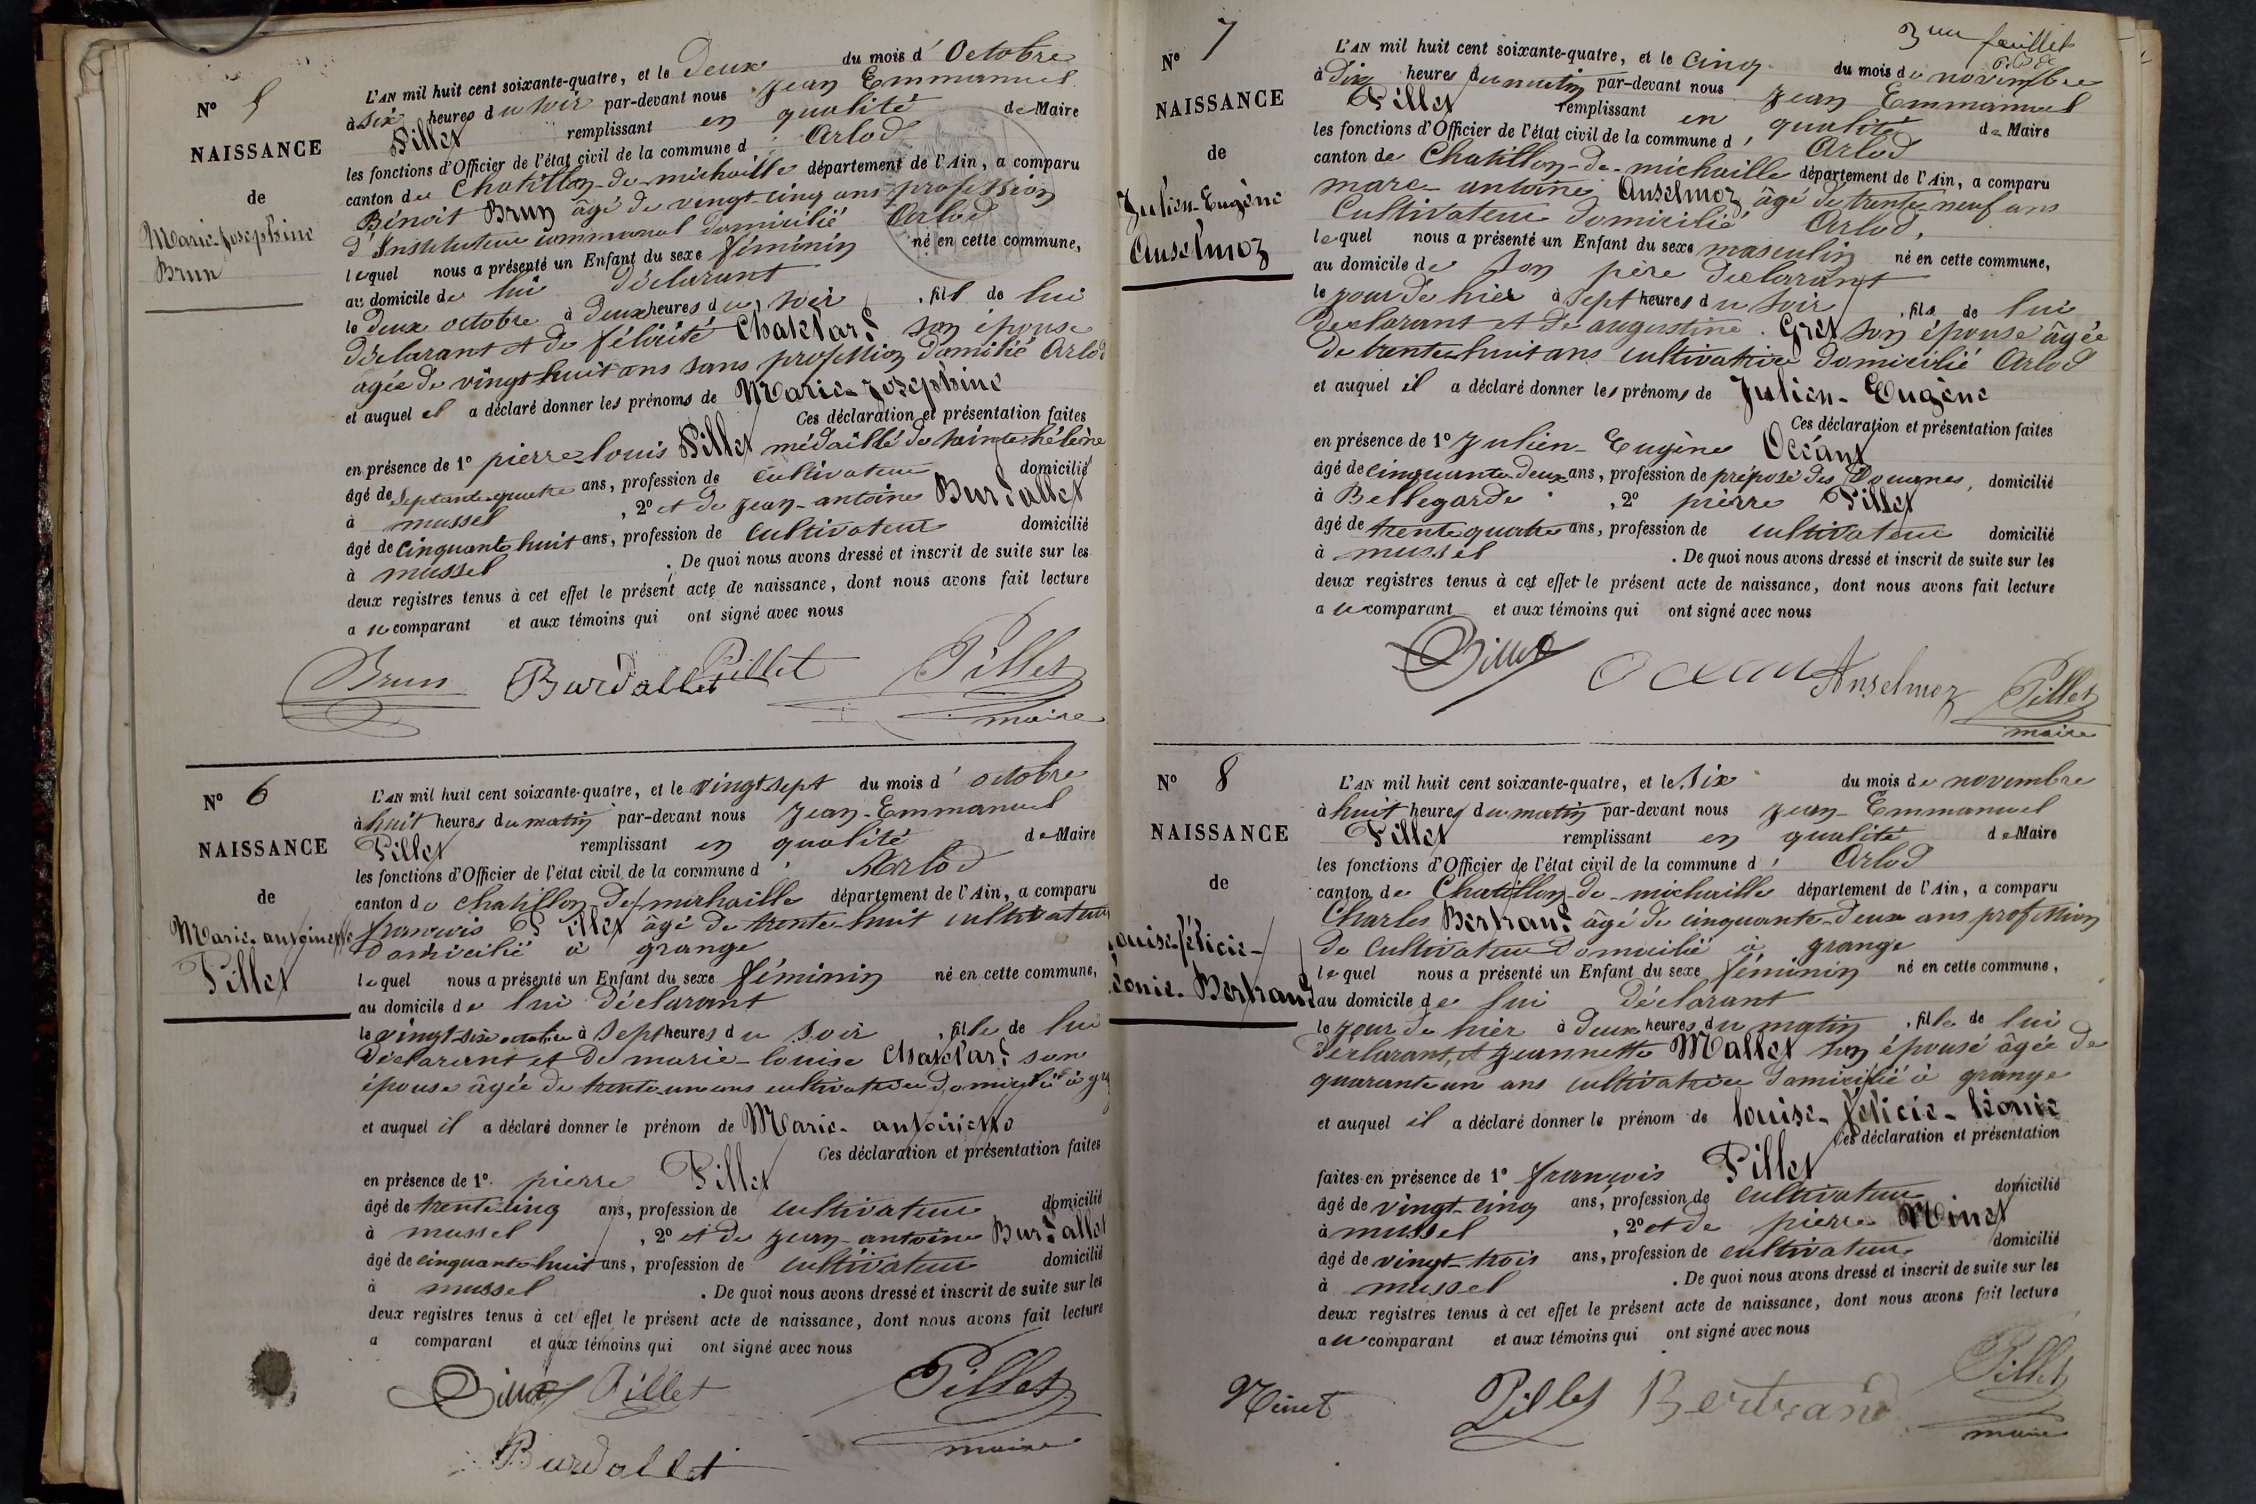 N° 5
NAISSANCE
de
Marie-Josephine
Brun
L'AN mil huit cent soixante-quatre, et le deux du mois d'Octobre
à six heures du soir par-devant nous Jean Emmanuel
Pillet remplissant en qualité de Maire
les fonctions d'Officier de l'état civil de la commune d'Arlod
canton de Chatillon-de-michaille département de l'Ain, a comparu
Bénoit Brun âgé de vingt-cinq ans profession
d'Instituteur communal domicilié Arlod
lequel nous a présenté un Enfant du sexe féminin né en cette commune,
au domicile de lui déclarant
le deux octobre à deux heures du soir, fil de lui
déclarant et de félicité Chatelard son épouse
âgée de vingt huit ans sans profession domilié Arlod
et auquel il a déclaré donner les prénoms de Marie-Josephine
Ces déclaration et présentation faites
en présence de 1° pierre-louis Pillet médaillé de Sainte hélène
âgé de septante-quatre ans, profession de cultivateur domicilié
à mussel, 2° et de Jean-antoine Burdallet
âgé de cinquante huit ans, profession de cultivateur domicilié
à mussel. De quoi nous avons dressé et inscrit de suite sur les
deux registres tenus à cet effet le présent acte de naissance, dont nous avons fait lecture
au comparant et aux témoins qui ont signé avec nous
Brun Burdallet Pillet Pillet
maire
N° 6
NAISSANCE
de
Marie-antoinette
Pillet
L'AN mil huit cent soixante-quatre, et le vingt sept du mois d'octobre
à huit heures du matin par-devant nous Jean-Emmanuel
Pillet remplissant en qualité de Maire
les fonctions d'Officier de l'état civil de la commune d'Arlod
canton de Chatillon-de-michaille département de l'Ain, a comparu
françois Pillet âgé de trente-huit cultivateur
domicilié à grange
lequel nous a présenté un Enfant du sexe féminin né en cette commune,
au domicile de lui déclarant
le vingt-six octobre à sept heures du soir, fille de lui
déclarant et de marie-louise Chatelard son
épouse âgée de trente-un ans cultivatrice domicilié à
et auquel il a déclaré donner le prénom de Marie-antoinette
Ces déclaration et présentation faites
en présence de 1° pierre Pillet
âgé de trente-cinq ans, profession de cultivateur domicilié
à mussel, 2° et de Jean-antoine Burdallet
âgé de cinquante huit ans, profession de cultivateur domicilié
à mussel. De quoi nous avons dressé et inscrit de suite sur les
deux registres tenus à cet effet le présent acte de naissance, dont nous avons fait lecture
a comparant et aux témoins qui ont signé avec nous
Pillet Pillet
Burdallet maire
3me feuillet
N° 7
NAISSANCE
de
Julien-Eugène
Anselmoz
L'AN mil huit cent soixante-quatre, et le cinq du mois de novembre
à dix heures du matin par-devant nous Jean Emmanuel
Pillet remplissant en qualité de Maire
les fonctions d'Officier de l'état civil de la commune d'Arlod
canton de Chatillon-de-michaille département de l'Ain, a comparu
marc-antoine Anselmoz âgé de trente-neuf ans
Cultivateur domicilié Arlod,
lequel nous a présenté un Enfant du sexe masculin né en cette commune,
au domicile de son père déclarant
le jour de hier à sept heures du soir, fils de lui
declarant et de augustine Gret son épouse âgée
de trente-huit ans cultivatrice domicilié Arlod
et auquel il a déclaré donner les prénoms de Julien-Eugène
Ces déclaration et présentation faites
en présence de 1° Julien-Eugène Océan
âgé de cinquante-deux ans, profession de préposé des Douanes, domicilié
à Bellegarde, 2° pierre Pillet
âgé de trente quatre ans, profession de cultivateur domicilié
à mussel. De quoi nous avons dressé et inscrit de suite sur les
deux registres tenus à cet effet le présent acte de naissance, dont nous avons fait lecture
au comparant et aux témoins qui ont signé avec nous
Pillet Ocean Anselmoz Pillet
maire
N° 8
NAISSANCE
de
Louise-félicie-
Léonie-Bertrand
L'AN mil huit cent soixante-quatre, et le six du mois de novembre
à huit heures du matin par-devant nous Jean-Emmanuel
Pillet remplissant en qualité de Maire
les fonctions d'Officier de l'état civil de la commune d'Arlod
canton de Chatillon-de-michaille département de l'Ain, a comparu
Charles Bertrand âgé de cinquante-deux ans profession
de Cultivateur domicilié à grange
lequel nous a présenté un Enfant du sexe féminin né en cette commune,
au domicile de lui déclarant
le jour de hier à deux heures du matin, fille de lui
déclarant, et Jeannette Mallet son épouse âgée de
quarante un ans cultivatrice domicilié à grange
et auquel il a déclaré donner le prénom de louise-félicie-léonie
Ces déclaration et présentation
faites en présence de 1° françois Pillet
âgé de vingt-cinq ans, profession de cultivateur domicilié
à mussel, 2° et de pierre Minet
âgé de vingt-trois ans, profession de cultivateur domicilié
à mussel. De quoi nous avons dressé et inscrit de suite sur les
deux registres tenus à cet effet le présent acte de naissance, dont nous avons fait lecture
au comparant et aux témoins qui ont signé avec nous
Minet Pillet Bertrand Pillet
maire